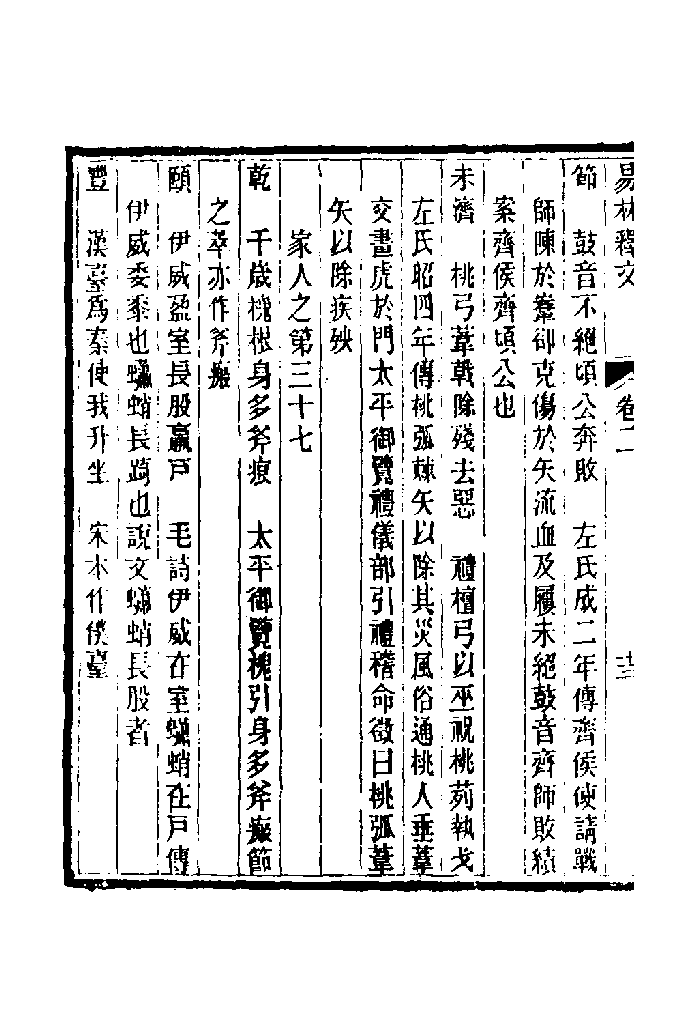 易林釋文　卷二　十三
節　鼓音不絕頃公奔敗　左氏成二年傳齊侯使請戰
師陳於鞌郤克傷於矢流血及屨未絕鼓音齊師敗績
案齊侯齊頃公也
未濟　桃弓葦戟除殘去惡　禮檀弓以巫祝桃茢執戈
左氏昭四年傳桃弧棘矢以除其災風俗通桃人垂葦
交畫虎於門太平御覽禮儀部引禮稽命徵曰桃弧葦
矢以除疾殃
家人之第三十七
乾　千歲槐根身多斧痕　太平御覽槐引身多斧瘢節
之萃亦作斧瘢
頤　伊威盈室長股贏戶　毛詩伊威在室蠨蛸在戶傳
伊威委黍也蠨蛸長踦也說文蠨蛸長股者
豐　漢臺爲秦使我升坐　宋本作僕臺